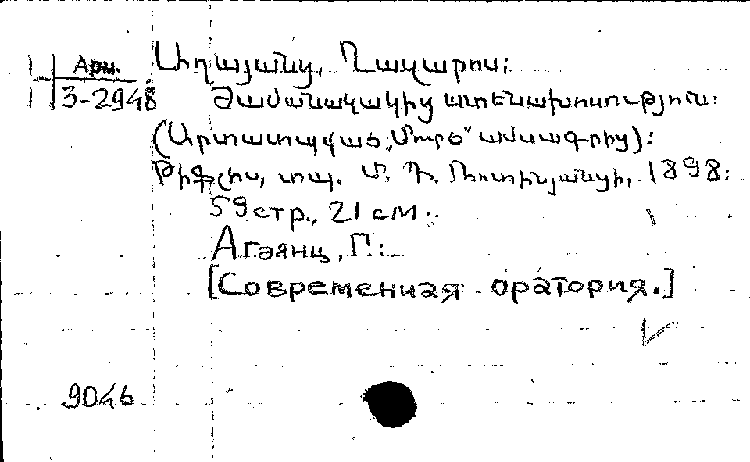 Арм.
3-2948
Աղայանց, Ղազարոս:
Ժամանակակից ատենախոսություն:
(Արտատպված „Մուրճ“ ամսագրից):
Թիֆլիս, տպ. Մ. Դ. Ռոտինյանցի, 1898:
59 стр., 21 см.:
Агаянц, Г.:
[Современная оратория.]
9046